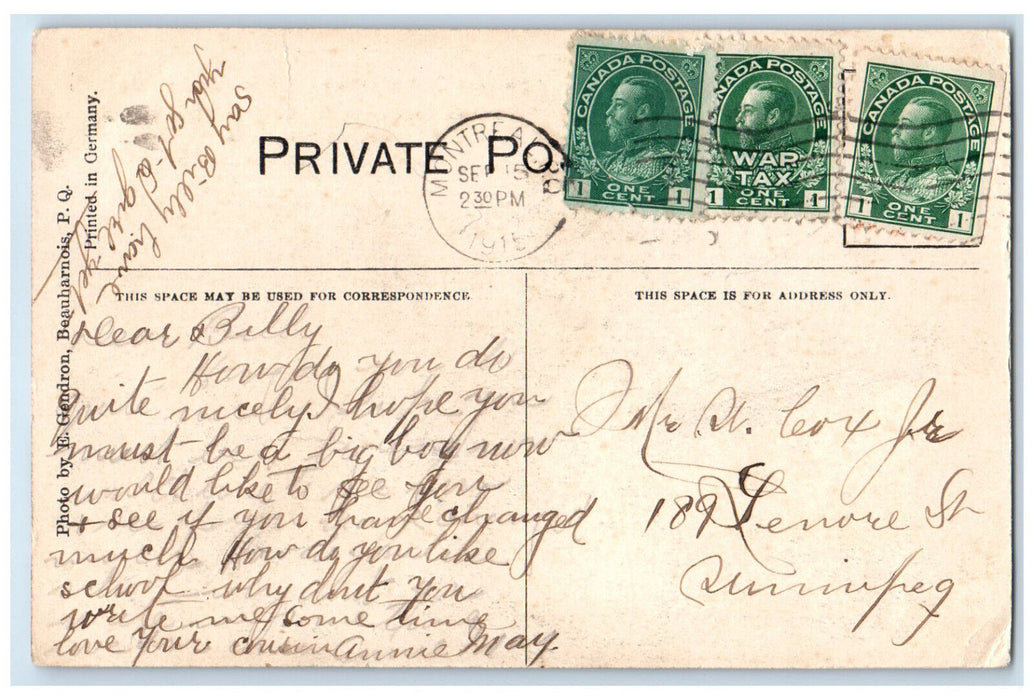 PRIVATE PO
CANADA POSTAGE
1 ONE CENT 1
CANADA POSTAGE
WAR TAX
1 ONE CENT 1
CANADA POSTAGE
1 ONE CENT 1
MONTREAL
SEP 15
2 30 PM
1915
Say Billy have
you got a girl
yet
Printed in Germany.
Photo by E. Gendron, Beauharnois, P. Q.
THIS SPACE MAY BE USED FOR CORRESPONDENCE
THIS SPACE IS FOR ADDRESS ONLY.
Dear Billy
How do you do
quite nicely I hope you
must be a big boy now
would like to see you
+ see if you have changed
much How do you like
school why dont you
write me some time
love your cousin Annie May.
Mr W. Cox Jr
Lenore St
Winnipeg